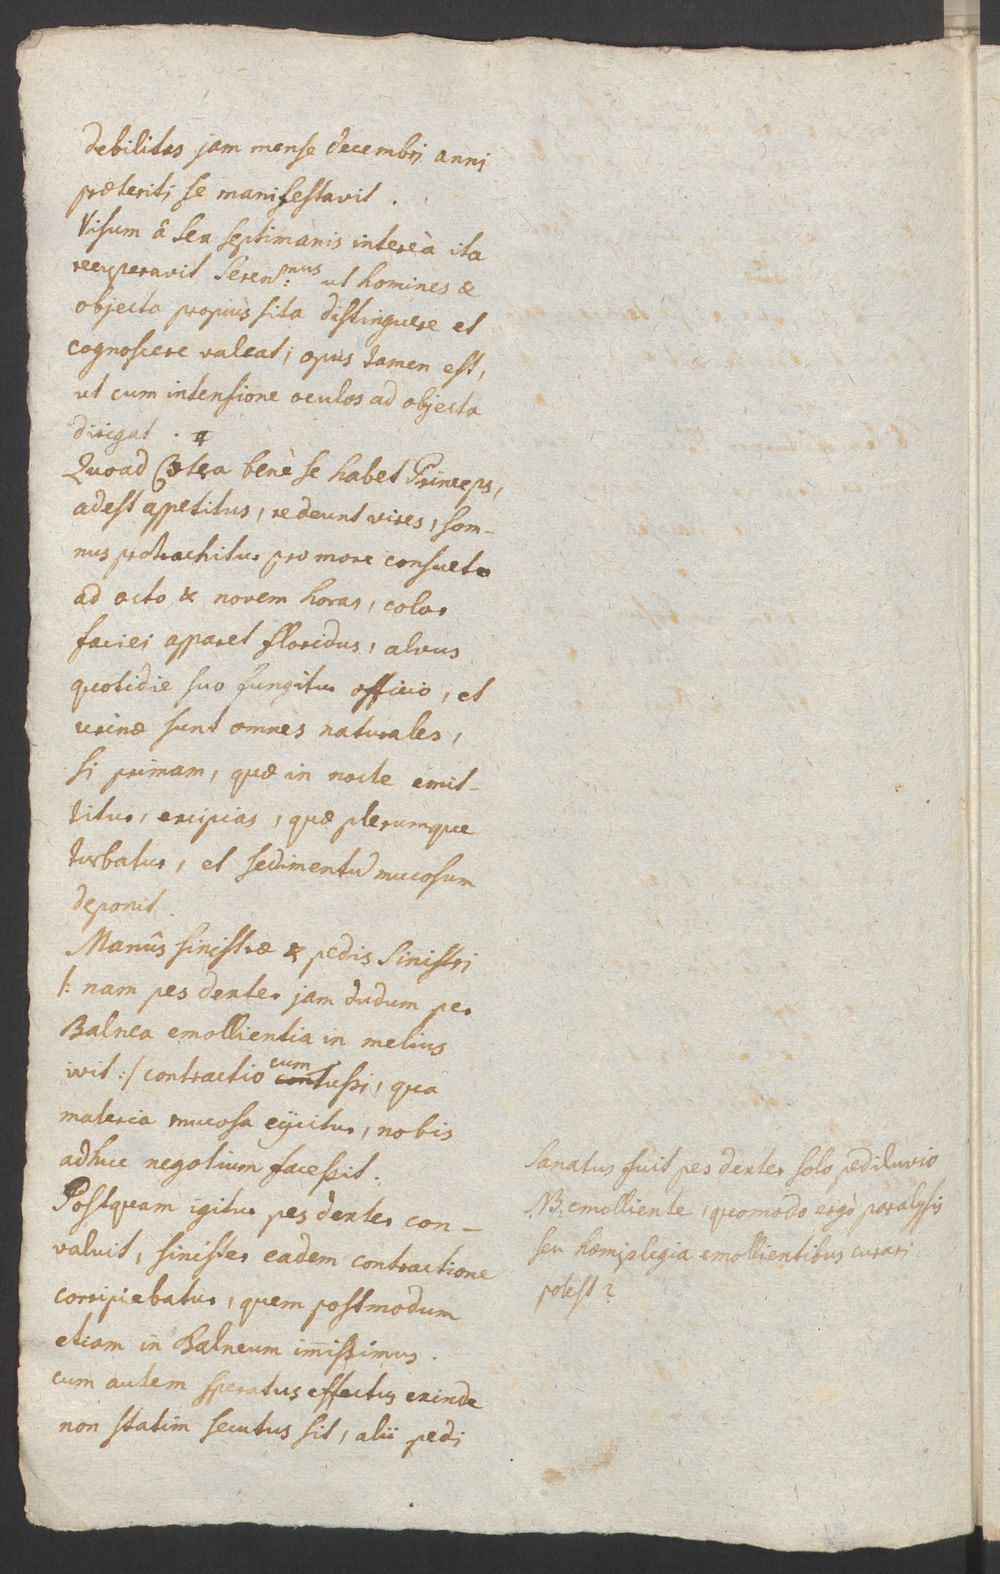 debilitas jam mense decembrj annj
præteritj se manifestavit .
Visum â sex septimanis intereà ita
recuperavit Seren:mus ut homines &
objecta propiùs sita distinguere et
cognoscere valeat; opus tamen est,
ut cum intensione oculos ad objecta
dirigat .
Quoad Cætera benè se habet Princeps,
adest appetitus, redeunt vires, som-
nus protrachitur pro more consueto
ad octo & novem horas, color
faciei apparet floridus, alvus
quotidie suo fungitur officio, et
urinæ sunt omnes naturales,
si primam, quæ in nocte emit-
titur, excipias, quæ plerumque
turbatur, et sedimentū mucosum
deponit .
Manûs sinistræ & pedis Sinistri
/: nam pes dexter jam dudum per
Balnea emollientia in melius
ivit :/ contractio cum tussi, qua
materia mucosa ejicitur, nobis
adhuc negotium facessit .
Postquam igitur pes dexter con-
valuit, sinister eadem contractione
corripiebatur, quem postmodum
etiam in Balneum im̄issimus .
cum autem speratus effectus exinde
non statim secutus sit, alii pedi
Sanatus fuit pes dexter solo pediluvio
NB: emolliente, quomodo ergò paralysis
seu hæmiplegia emollientibus curari
potest?